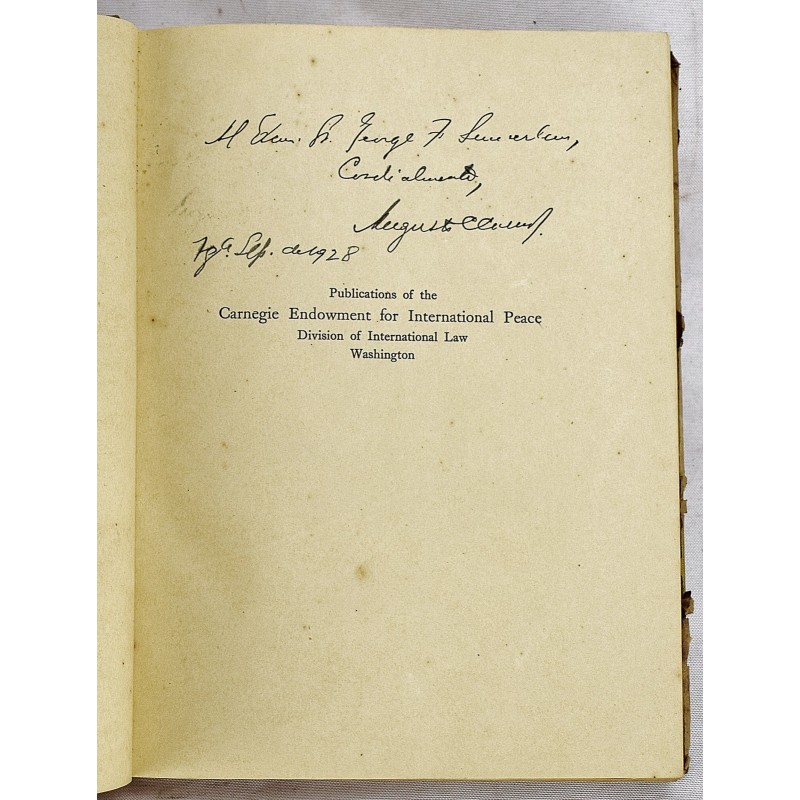 Al Exmo. Sr. George F. Summerlin,
Cordialmente,
Augusto
Sep. de 1928
Publications of the
Carnegie Endowment for International Peace
Division of International Law
Washington